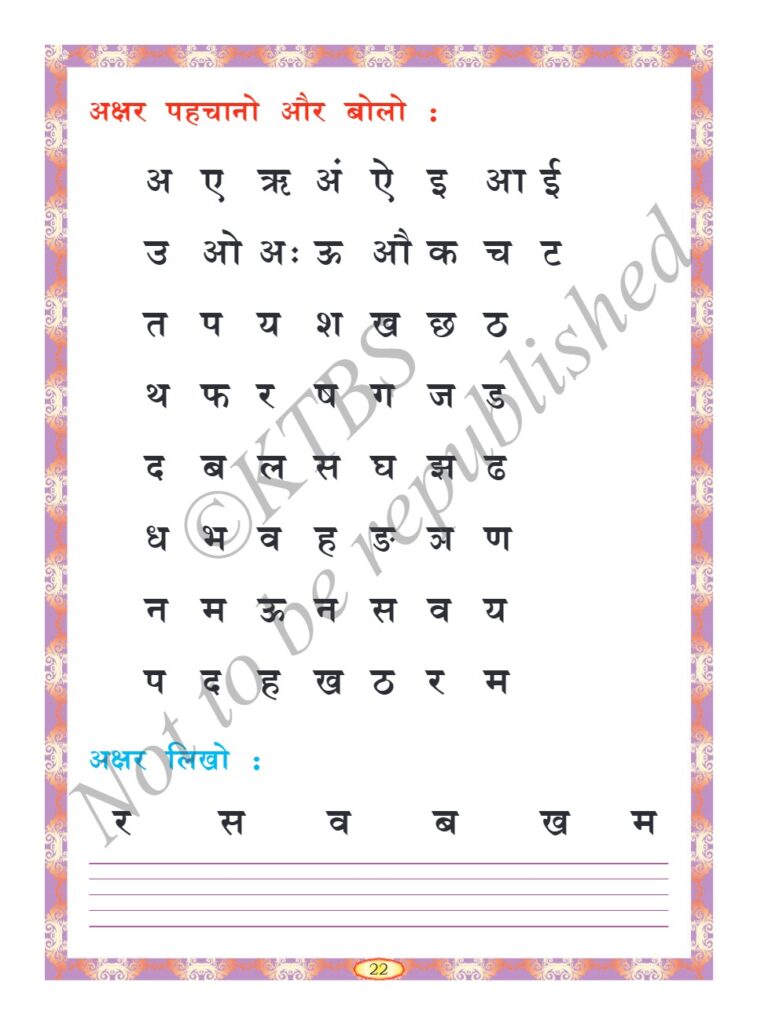 अक्षर पहचानो और बोलो :
अ ए ऋ अं ऐ इ आ ई
उ ओ अः ऊ औ क च ट
त प य श ख छ ठ
थ फ र ष ग ज ड
द ब ल स घ झ ढ
ध भ व ह ङ ञ ण
न म ऊ न स व य
प द ह ख ठ र म
©KTBS
Not to be republished
अक्षर लिखो :
र स व ब ख म
22